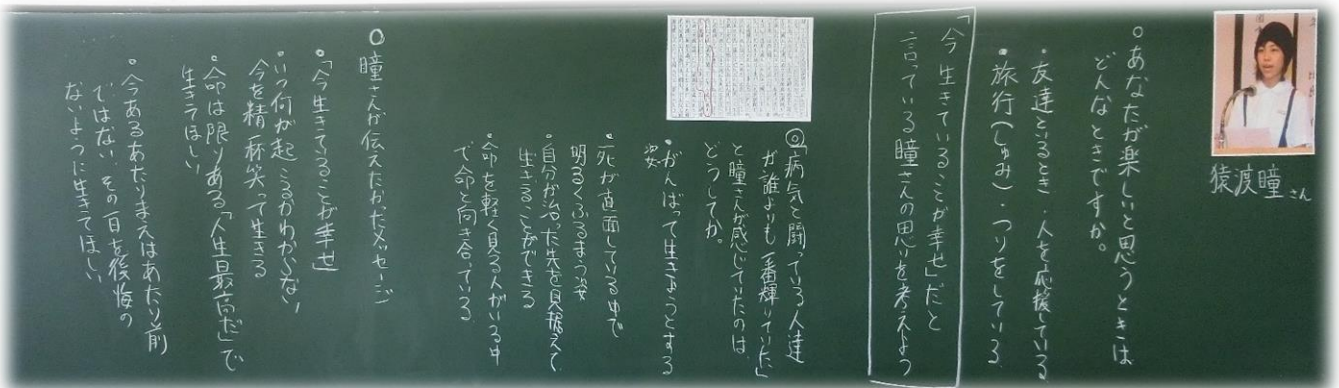 猿渡瞳さん
○あなたが楽しいと思うときは
どんなときですか。
・友達といるとき・人を応援している
・旅行(しゅみ)・つりをしている
「今生きていることが幸せ」だと
言っている瞳さんの思いを考えよう
◎「病気と闘っている人達
が誰よりも一番輝いていた」
と瞳さんが感じていたのは
どうしてか。
・がんばって生きようとする
姿
・死が直面している中で
明るくふるまう姿
・自分が治った先を見据えて
生きることができる
・命を軽く見る人がいる中
で命と向き合っている
○瞳さんが伝えたかったメッセージ
・「今生きてることが幸せ」
・いつ何が起こるかわからない
今を精一杯笑って生きる
・命は限りある「人生最高だ」で
生きてほしい
・今あるあたりまえはあたり前
ではない、その一日を後悔の
ないように生きてほしい